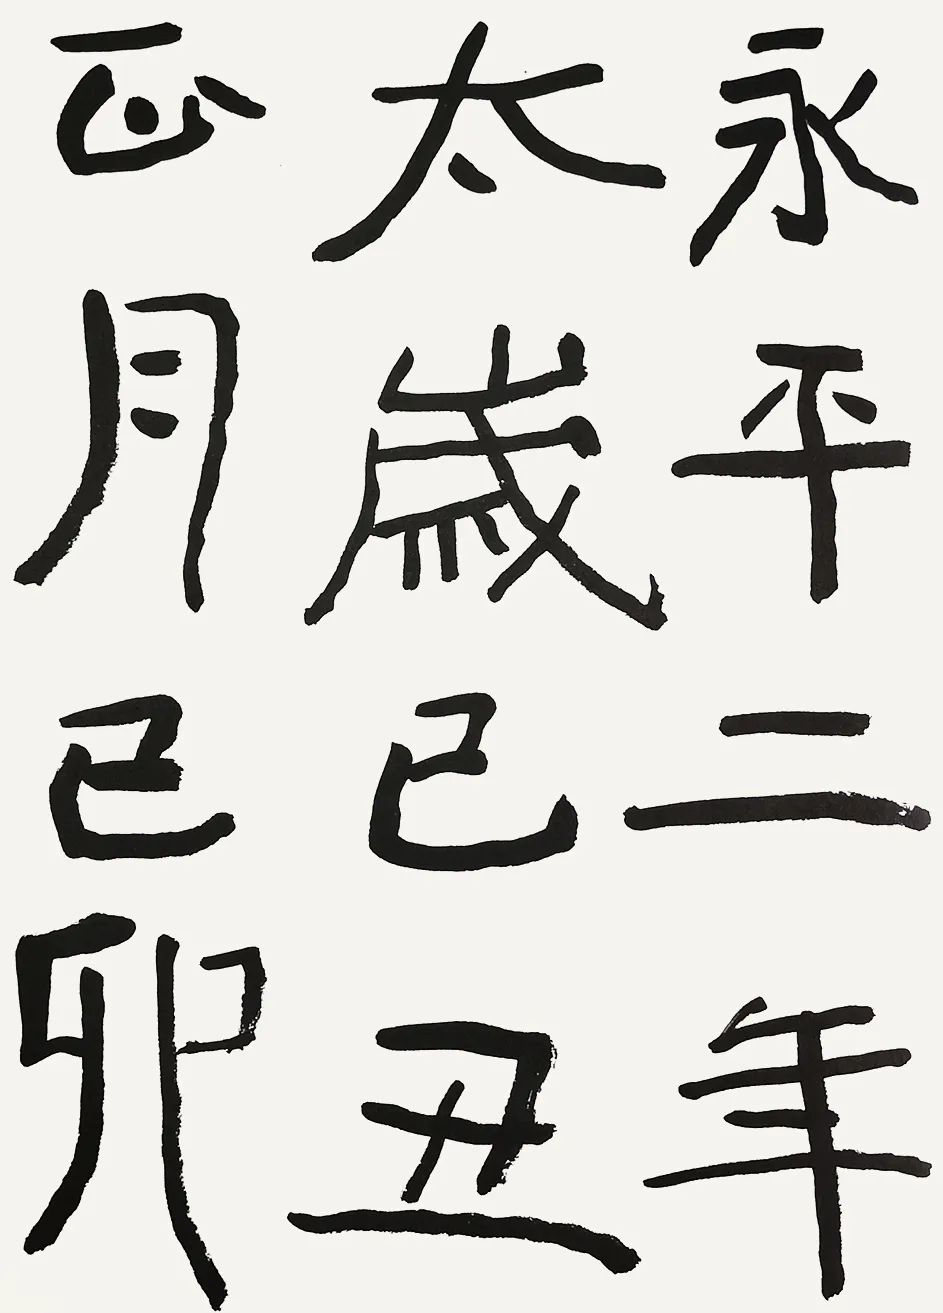 永平二年
太歲己丑
正月己卯